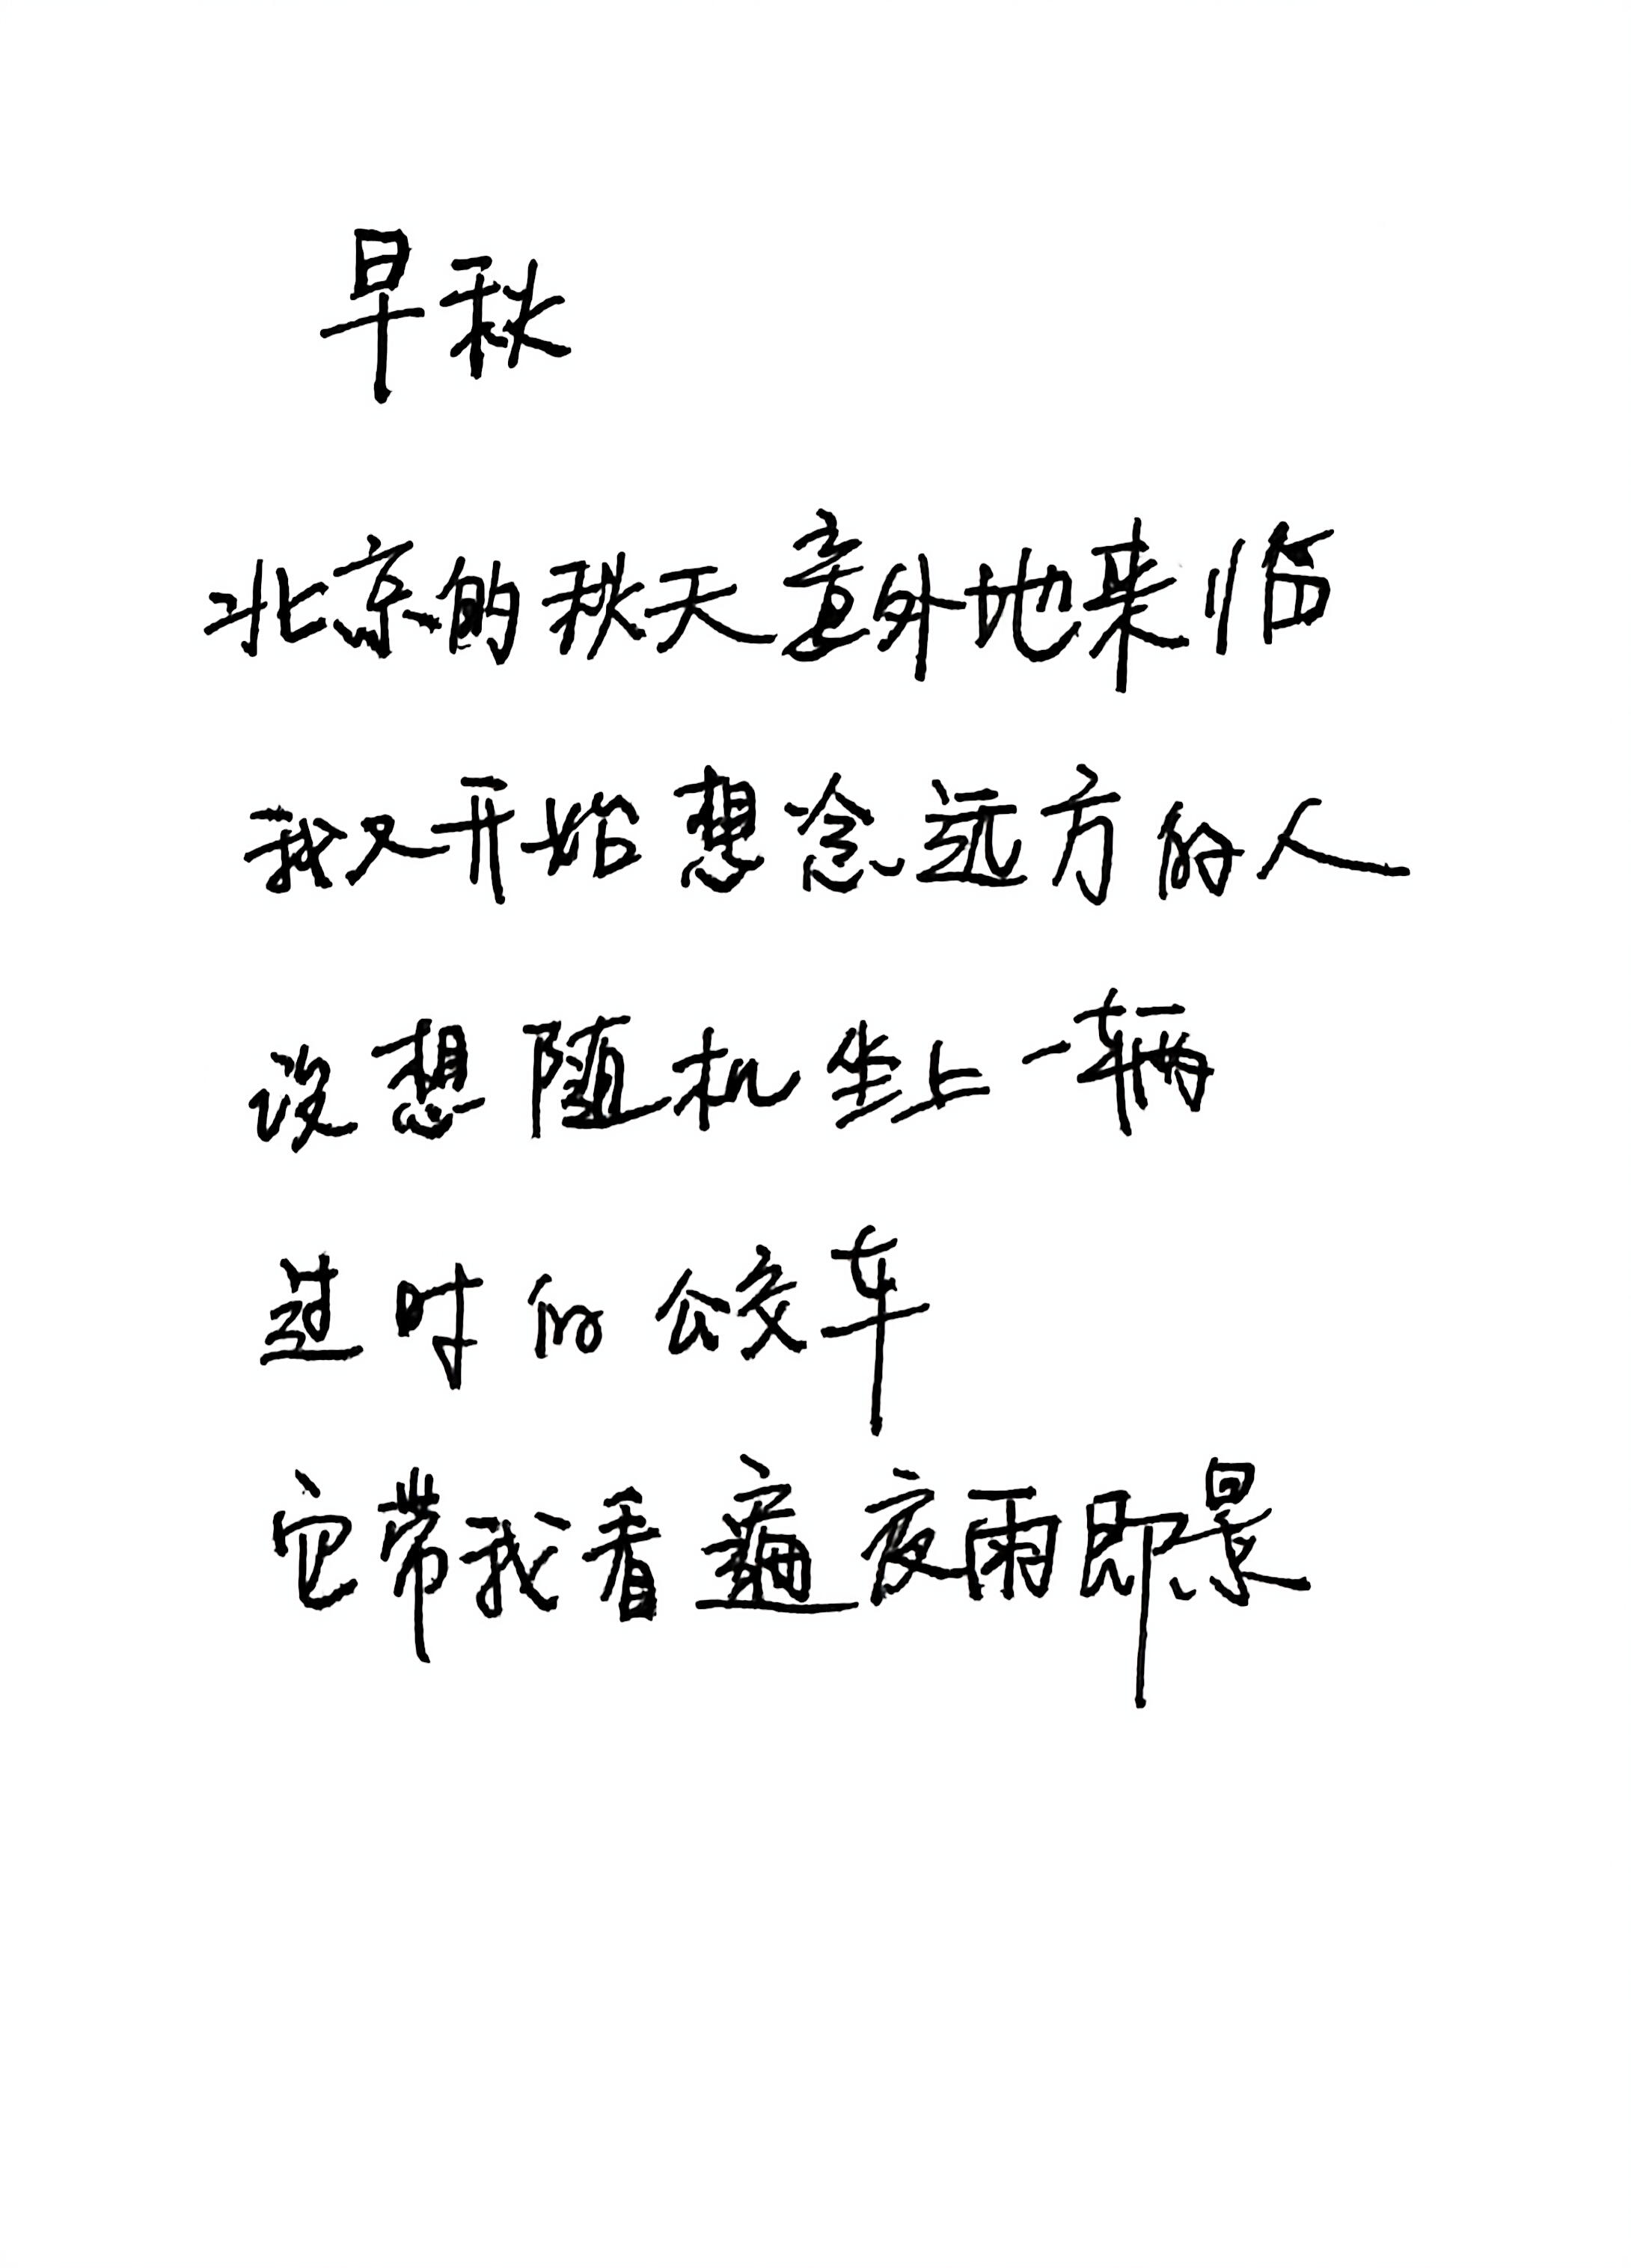 早秋
北京的秋天意外地来临
我又开始想念远方的人
设想随机坐上一辆
过时的公交车
它带我看遍夜雨即景